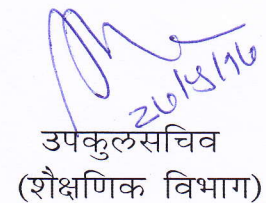 26/5/16
उपकुलसचिव
(शैक्षणिक विभाग)